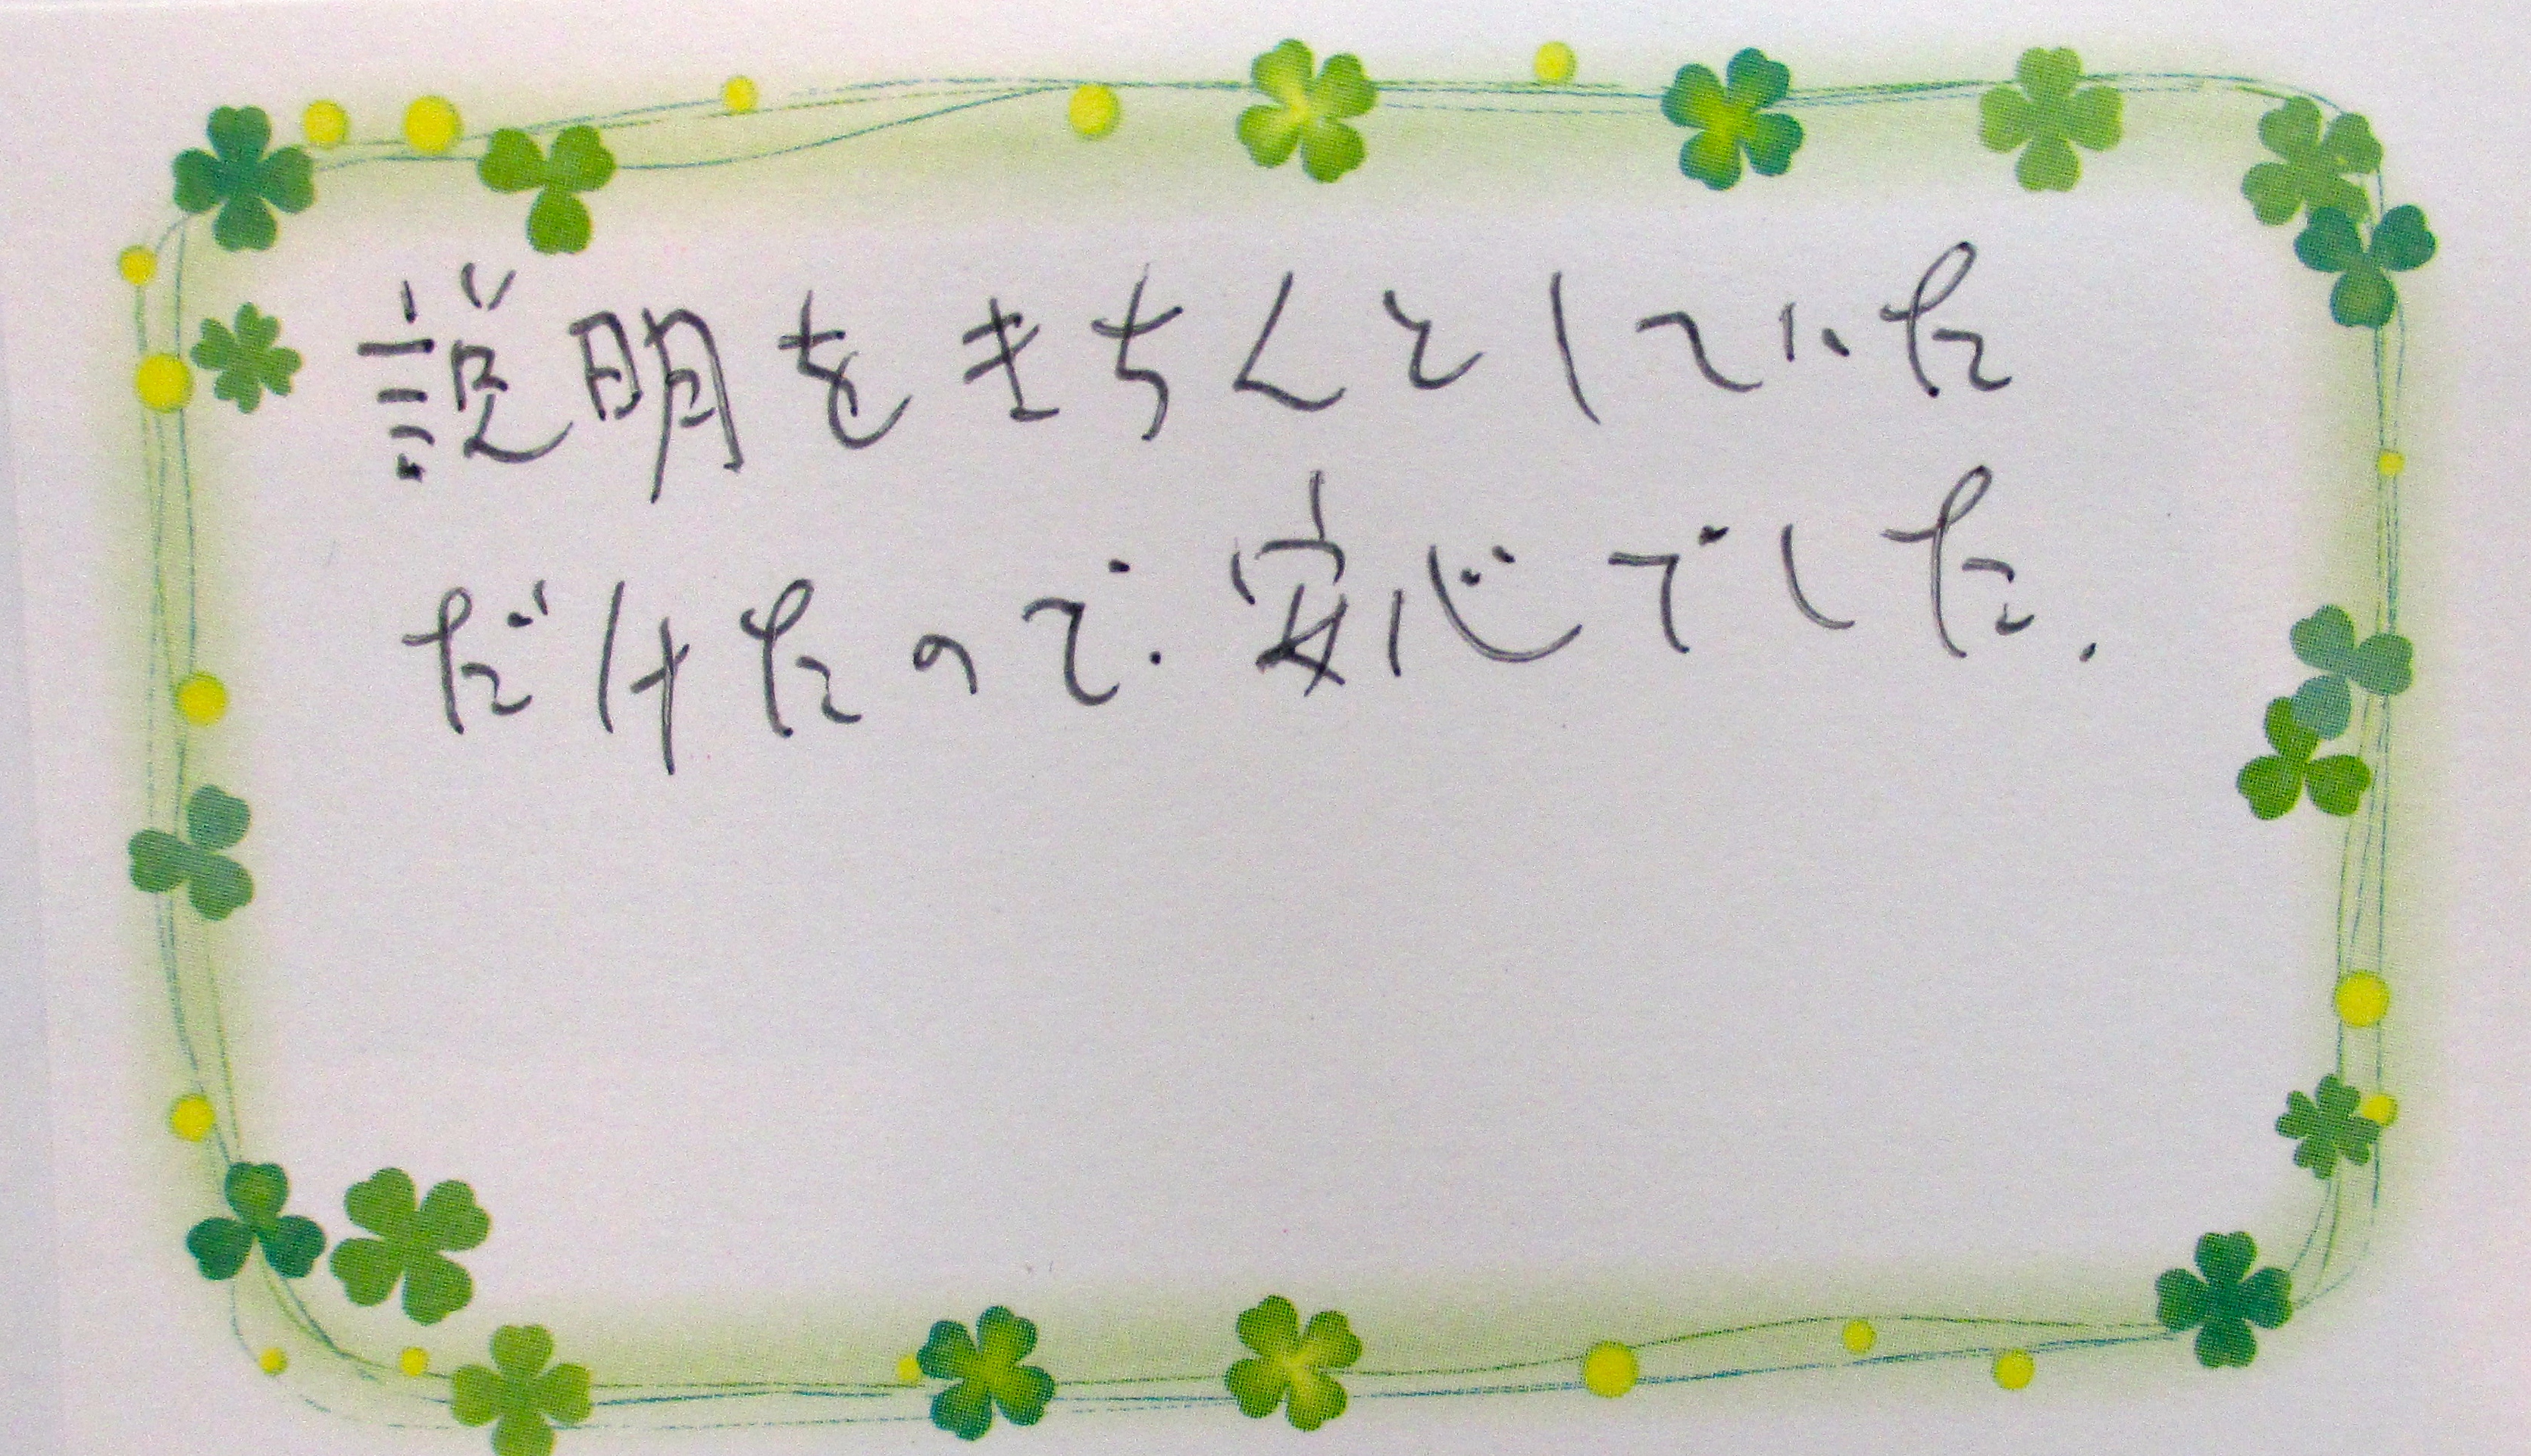 説明をきちんとしていた
だけたので.安心でした.